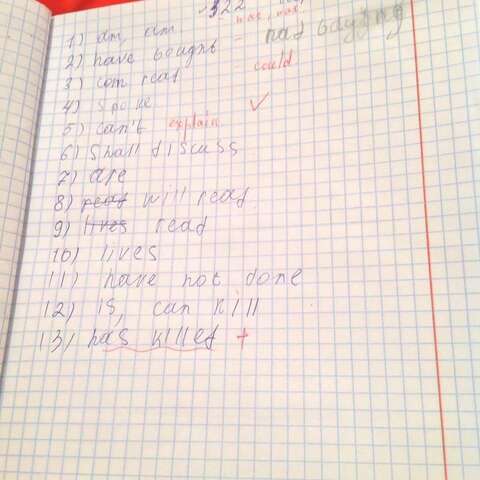 322
was, was
1) am, am
2) have bought = had
3) com read could
4) spoke
5) can't explain
6) Shall discuss
7) are
8) read will read
9) lives read
10) lives
11) have not done
12) is, can kill
13) has killed +